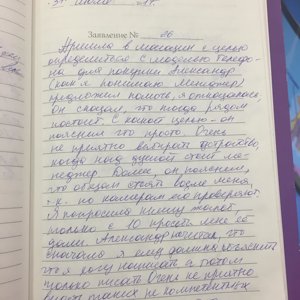 31 июля
Заявление № 26
Пришла в магазин с целью
определиться с моделью телефо-
на для покупки. Александр
(как я понимаю менеджер)
предложил помочь я отказалась
Он сказал, что тогда рядом
постоит. С какой целью - он
пояснил что просто. Очень
не приятно выбирать устройство,
когда над душой стоит ме-
неджер. Далее, он пояснил,
что обязан стоять возле меня
т.к. по камерам его проверяют.
Я попросила книгу жалоб
только с 10 просьбы мне её
дали. Александр считает, что
вначале я ему должна объяснить
что я хочу написать а потом
только писать. Очень не приятно
видеть таких не компетентных